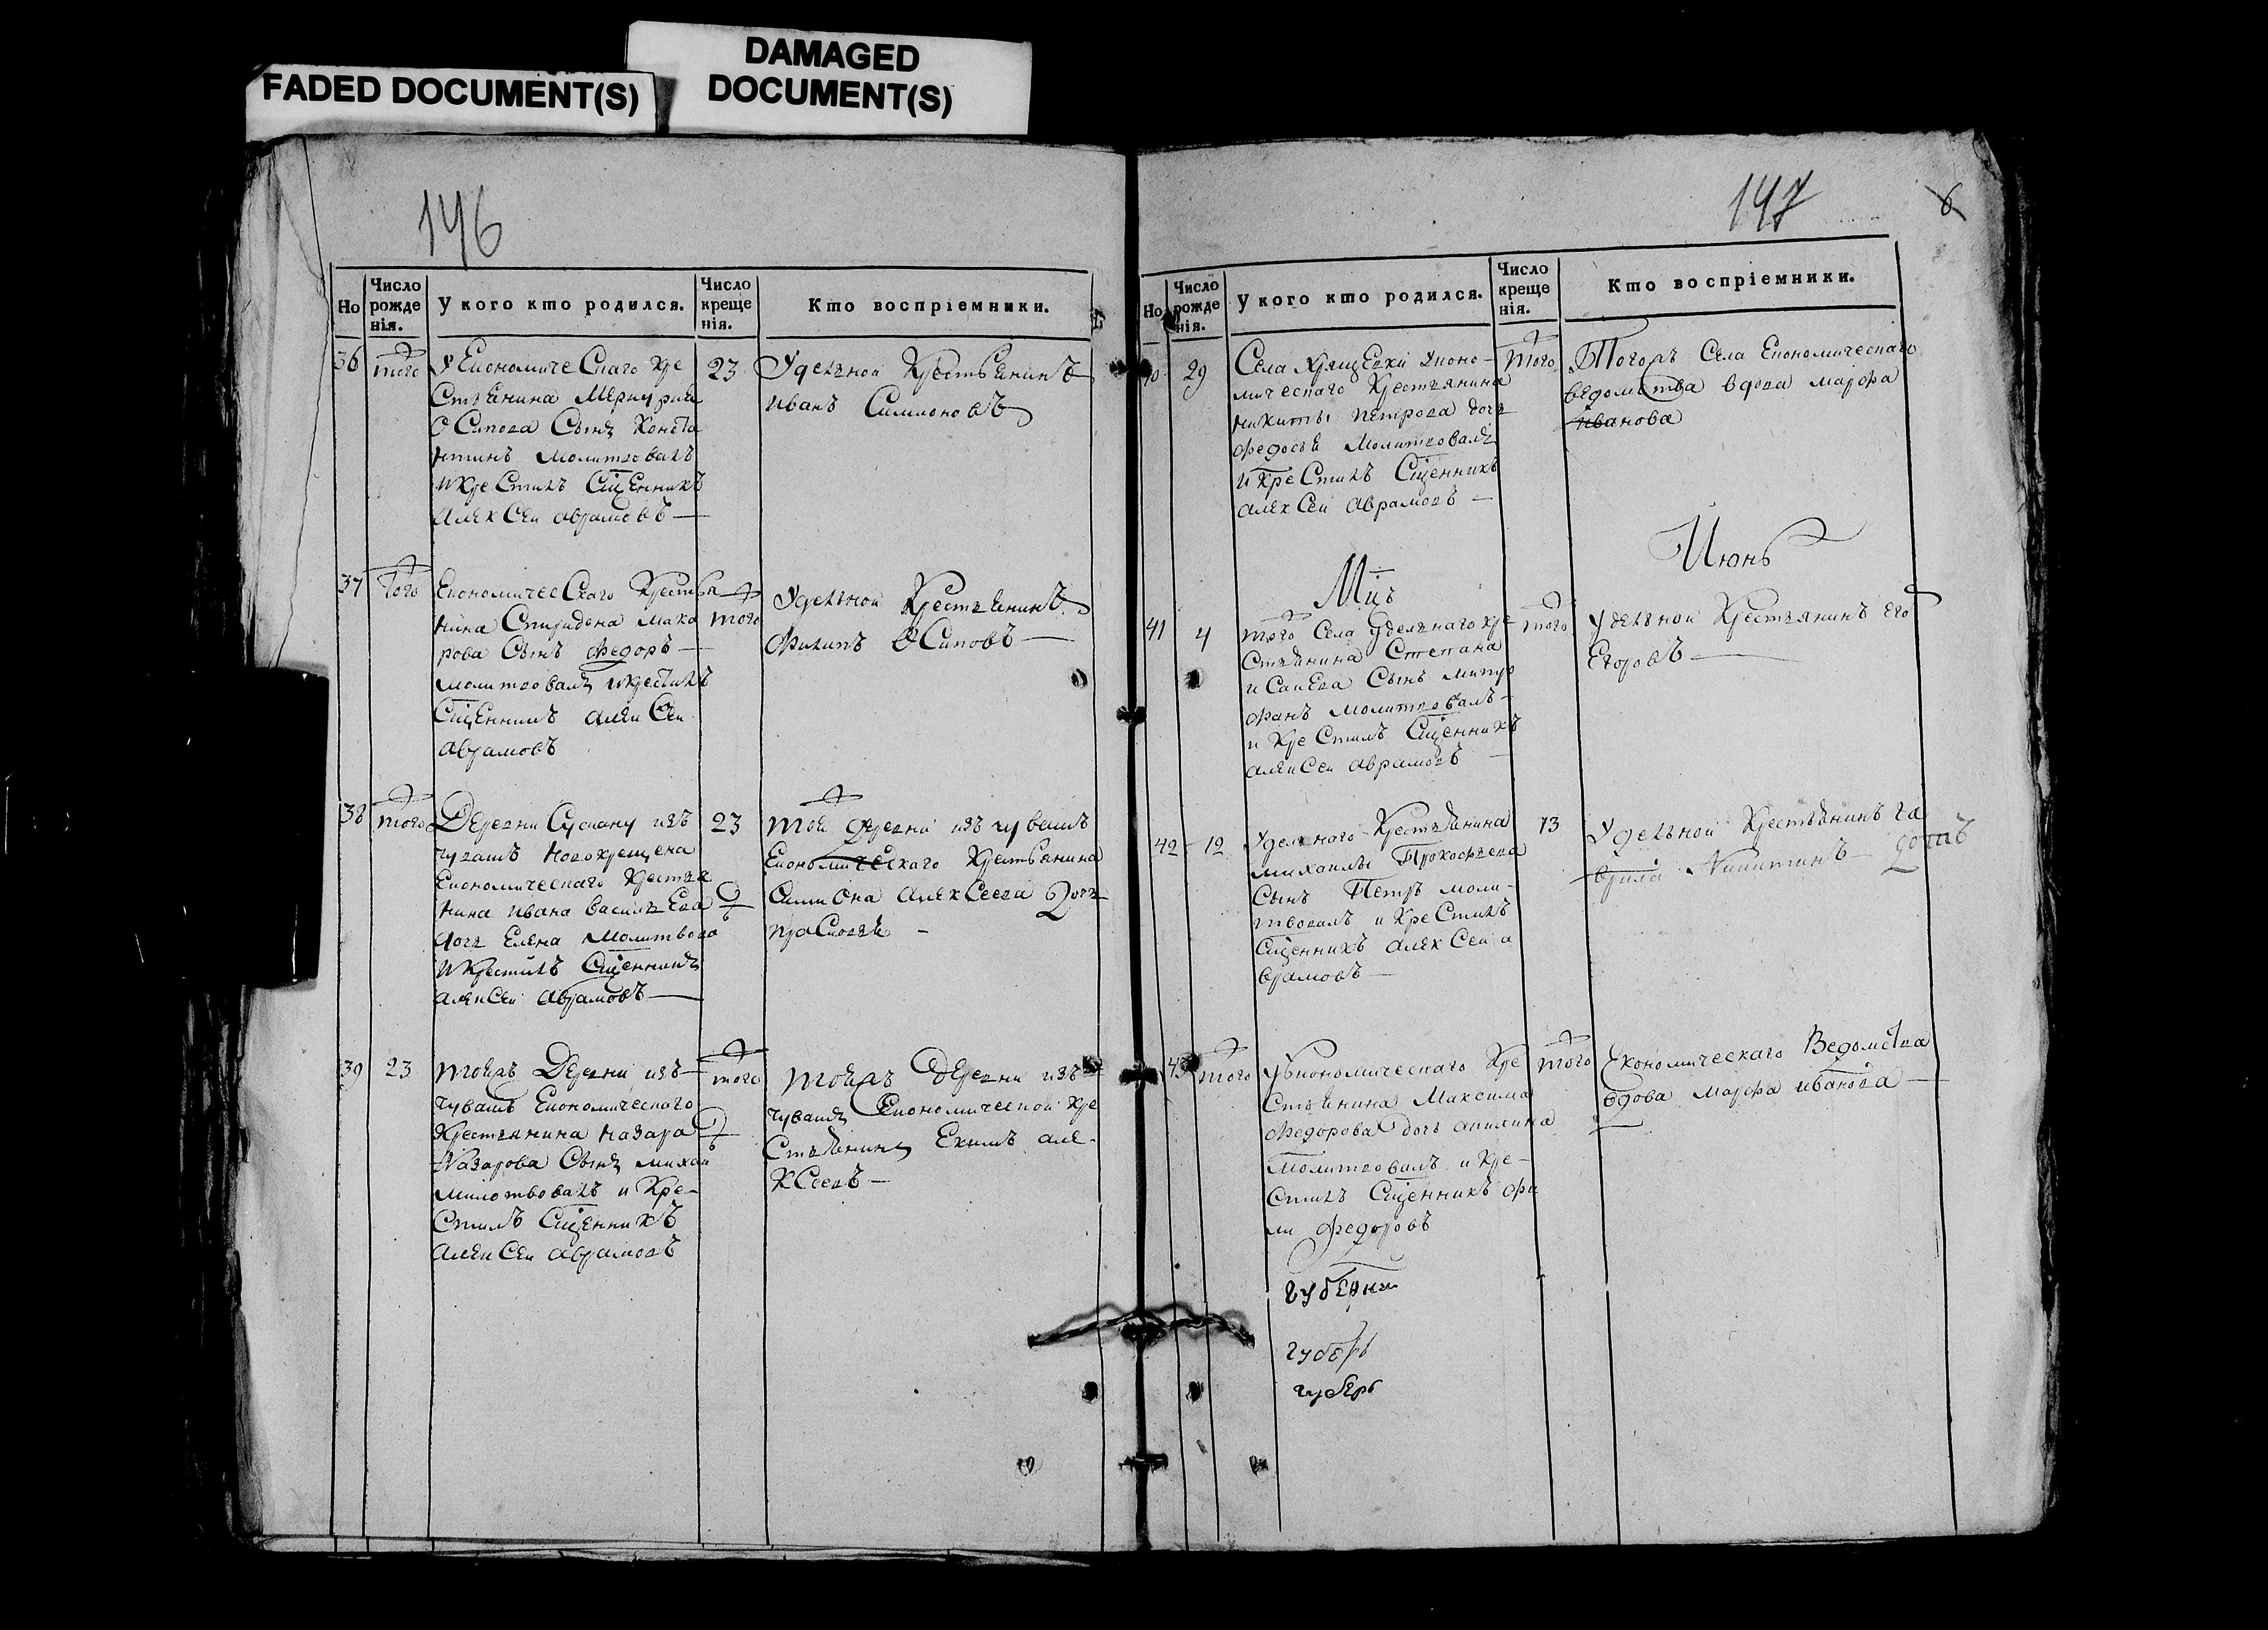 FADED DOCUMENT(S)
DAMAGED
DOCUMENT(S)
146
Но
Число рожде нія.
У кого кто родился.
Число креще нія.
Кто воспріемники.
36
того
У Економическаго Кре
стьянина Меркурия
Осипова Сынъ Конста
нтинъ молитвовалъ
и Крестилъ Сщенникъ
Алексеи аврамовъ
23
Уделной Крестьянинъ
иванъ Симионовъ
37
того
Економическаго Крестья
нина Спиридона Мака
рова Сынъ Федоръ
молитвовалъ и крестилъ
Сщенникъ алексеи
аврамовъ
того
Уделной Крестьянинъ
Филипъ Осиповъ
38
того
Деревни изъ
чувашъ новокрещена
Економическаго Крестья
нина ивана васильева
дочь Елена молитвова
и Крестилъ Сщенникъ
алексеи аврамовъ
23
той деревни изъ чувашъ
Економическаго Крестьянина
Симиона алексеева дочь
39
23
тойжъ Деревни изъ
чувашъ Економическаго
Крестьянина назара
Назарова Сынъ михаи
молотвовалъ и Кре
стилъ Сщенникъ
алексеи аврамовъ
того
тойжъ деревни изъ
чувашъ Економической кре
стьянинъ Екимъ але
ксеевъ
147
6
Но
Число рожде нія.
У кого кто родился.
Число креще нія.
Кто воспріемники.
40
29
Села Хрящевки Иконо
мическаго Крестьянина
никиты петрова дочь
федосья молитвовалъ
и Крестилъ Сщенникъ
алексеи аврамовъ
того
Тогожъ Села Економическаго
ведомства вдова марфа
иванова
Мцъ
Июнь
41
4
того Села уделнаго кре
стьянина Степана
исаиева Сынъ митро
фанъ молитвовалъ
и Крестилъ Сщенникъ
алексеи аврамовъ
того
уделной Крестьянинъ его
Егоровъ
42
12
Уделнаго Крестьянина
михаилы Прокофьева
Сынъ Петръ моли
твовалъ и Крестилъ
Сщенникъ алексеи а
врамовъ
13
Уделной Крестьянинъ га
врила Никитинъ
43
того
У Економическаго Кре
стьянина Максима
Федорова дочь акилина
молитвовалъ и Кре
стилъ Сщенникъ фи
ли федоровъ
того
Економическаго Ведомства
вдова марфа иванова
губерни
губерь
губерь